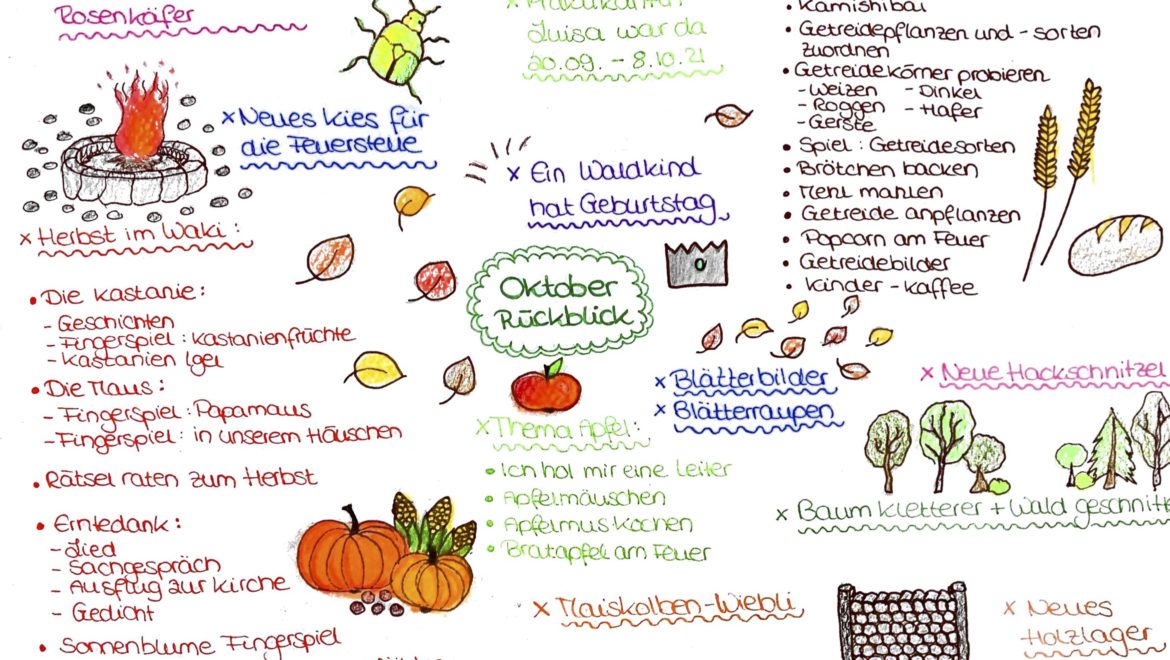 Rosenkäfer
x Neues Kies für
die Feuerstelle
x Herbst im Waki :
• Die Kastanie :
- Geschichten
- Fingerspiel : Kastanienfrüchte
- Kastanien Igel
• Die Maus :
- Fingerspiel : Papamaus
- Fingerspiel : in unserem Häuschen
• Rätsel raten zum Herbst
• Erntedank :
- Lied
- Sachgespräch
- Ausflug zur Kirche
- Gedicht
• Sonnenblume Fingerspiel
Luisa war da
20.09. - 8.10.21
x Ein Waldkind
hat Geburtstag
Oktober
Rückblick
x Blätterbilder
x Blätterraupen
x Thema Apfel :
• Ich hol mir eine Leiter
• Apfelmäuschen
• Apfelmus kochen
• Bratapfel am Feuer
x Maiskolben-Wiebli
• Kamishibai
• Getreidepflanzen und - sorten
zuordnen
• Getreidekörner probieren
- Weizen - Dinkel
- Roggen - Hafer
- Gerste
• Spiel : Getreidesorten
• Brötchen backen
• Mehl mahlen
• Getreide anpflanzen
• Popcorn am Feuer
• Getreidebilder
• Kinder - kaffee
x Neue Hackschnitzel
x Baum kletterer + Wald geschnitte
x Neues
Holzlager